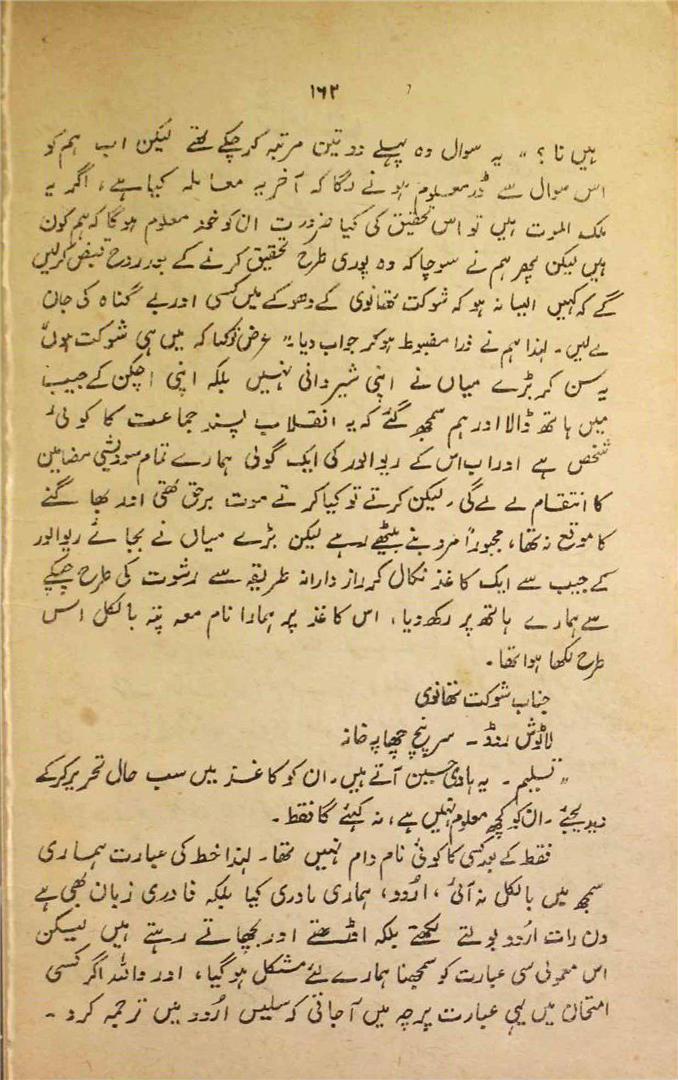 ۱۶۲
ہیں نا؟" یہ سوال وہ پہلے دو تین مرتبہ کر چکے تھے لیکن اب ہم کو
اس سوال سے ڈر معلوم ہونے لگا کہ آخر یہ معاملہ کیا ہے، اگر یہ
ملک الموت ہیں تو اس تحقیق کی کیا ضرورت ان کو خود معلوم ہوگا کہ ہم کون
ہیں لیکن پھر ہم نے سوچا کہ وہ پوری طرح تحقیق کرنے کے بعد روح قبض کریں
گے کہ کہیں ایسا نہ ہو کہ شوکت تھانوی کے دھوکے میں کسی اور بے گناہ کی جان
لے لیں۔ لہذا ہم نے ذرا مضبوط ہو کر جواب دیا "عرض تو کیا کہ میں ہی شوکت ہوں"
یہ سن کر بڑے میاں نے اپنی شیروانی نہیں بلکہ اپنی اچکن کے جیب
میں ہاتھ ڈالا اور ہم سمجھ گئے کہ یہ انقلاب پسند جماعت کا کوئی
شخص ہے اور اب اس کے ریوالور کی ایک گولی ہمارے تمام سودیشی مضامین
کا انتقام لے لے گی۔ لیکن کرتے تو کیا کرتے موت برحق تھی اور بھاگنے
کا موقع نہ تھا، مجبوراً مرد بنے بیٹھے رہے لیکن بڑے میاں نے بجائے ریوالور
کے جیب سے ایک کاغذ نکال کر راز دارانہ طریقہ سے رشوت کی طرح چپکے
سے ہمارے ہاتھ پر رکھ دیا، اس کاغذ پر ہمارا نام معہ پتہ بالکل اس
طرح لکھا ہوا تھا۔
جناب شوکت تھانوی
لاٹوش روڈ۔ سرپنچ چھاپہ خانہ
"تسلیم۔ یہ ہادی حسین آتے ہیں۔ ان کو کاغذ میں سب حال تحریر کر کے
دیدیجئے۔ ان کو کچھ معلوم نہیں ہے، نہ کہئے گا فقط۔
فقط کے بعد کسی کا کوئی نام وام نہیں تھا۔ لہذا خط کی عبارت ہماری
سمجھ میں بالکل نہ آئی، اردو، ہماری مادری کیا بلکہ فادری زبان بھی ہے
دن رات اردو بولتے لکھتے بلکہ اوڑھتے اور بچھاتے رہتے ہیں لیکن
اس معمولی سی عبارت کو سمجھنا ہمارے لئے مشکل ہو گیا، اور واللہ اگر کسی
امتحان میں یہی عبارت پرچہ میں آ جاتی کہ سلیس اردو میں ترجمہ کرو۔